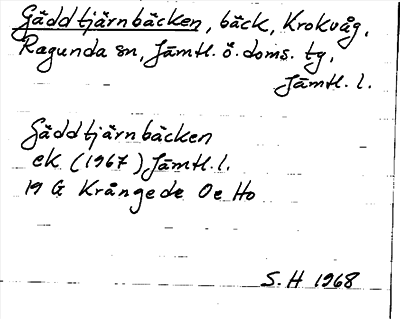 Gäddtjärnbäcken, bäck, Krokvåg,
Ragunda sn, Jämtl. ö. doms. tg,
Jämtl. l.
Gäddtjärnbäcken
ek (1967) Jämtl. l.
19 G Krångede Oe Ho
S. H 1968